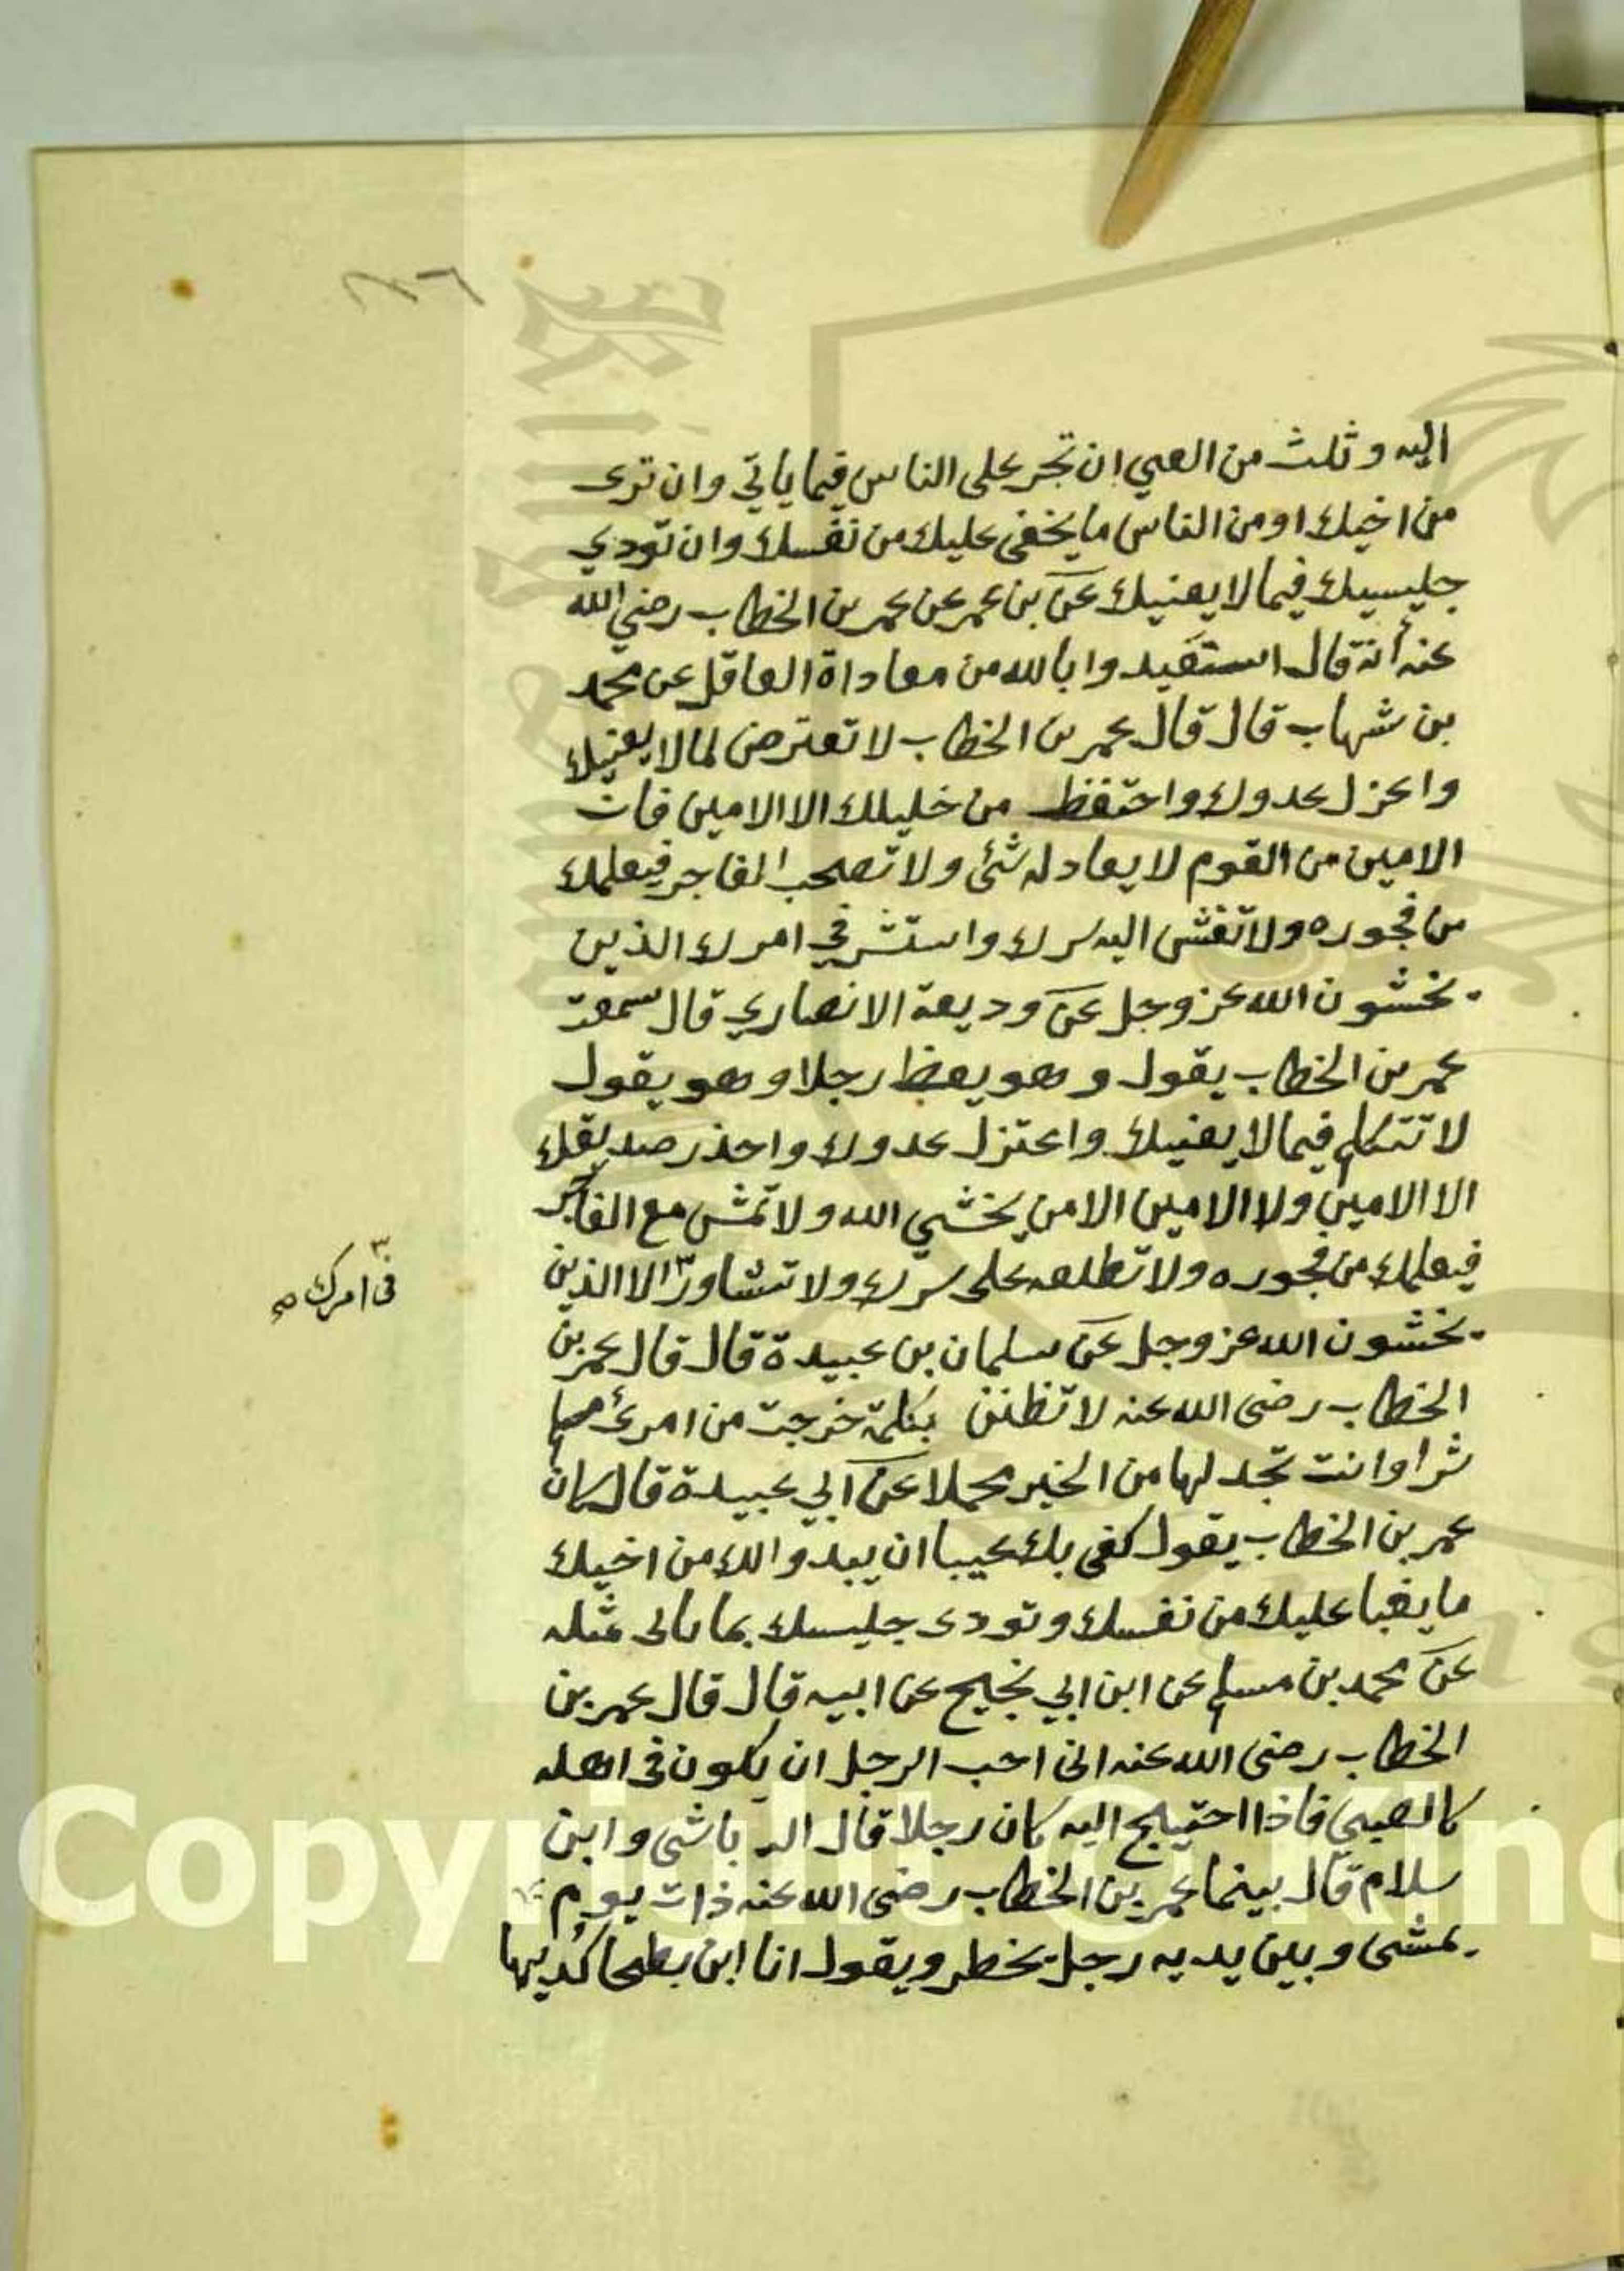 اليه وثلث من العي ان تجر على الناس فيما ياتي وان ترى
من اخيك او من الناس ما يخفى عليك من نفسك وان تودي
جليسيك فيما لا يعنيك عن بن عمر عن عمر بن الخطاب رضي الله
عنه أنه قال استعيدوا بالله من معاداة العاقل عن محمد
بن شهاب قال قال عمر بن الخطاب لا تعترض لما لا يعنيك
واعزل عدوك واحتفظ من خليلك الا الامين فان
الامين من القوم لا يعادله شئ ولا تصحب الفاجر فيعلمك
من فجوره ولا تفش اليه سرك واستشر في امرك الذين
يخشون الله عز وجل عن وديعة الانصاري قال سمعت
عمر بن الخطاب يقول وهو يعظ رجلا وهو يقول
لا تتكلم فيما لا يعنيك واعتزل عدوك واحذر صديقك
الا الامين ولا الامين الا من يخشي الله ولا تمش مع الفاجر
فيعلمك من فجوره ولا تطلعه على سرك ولا تشاور ٣ الا الذين
٣ في امرك صح
يخشون الله عز وجل عن سلمان بن عبيدة قال قال عمر بن
الخطاب رضى الله عنه لا تظنن بكلمة خرجت من امرئ مسلم
شرا وانت تجد لها من الخير محملا عن ابي عبيدة قال كان
عمر بن الخطاب يقول كفى بك عيبا ان يبدو الك من اخيك
ما يغبا عليك من نفسك وتودى جليسك بما تاتى مثله
عن محمد بن مسلم عن ابن ابي نجيح عن ابيه قال قال عمر بن
الخطاب رضى الله عنه انى احب الرجل ان يكون في اهله
كالصبي فاذا احتيج اليه كان رجلا قال الرياشى وابن
سلام قال بينما عمر بن الخطاب رضى الله عنه ذات يوم
يمشى وبين يديه رجل يخطر ويقول انا ابن بطحا كديها
Copyright © King